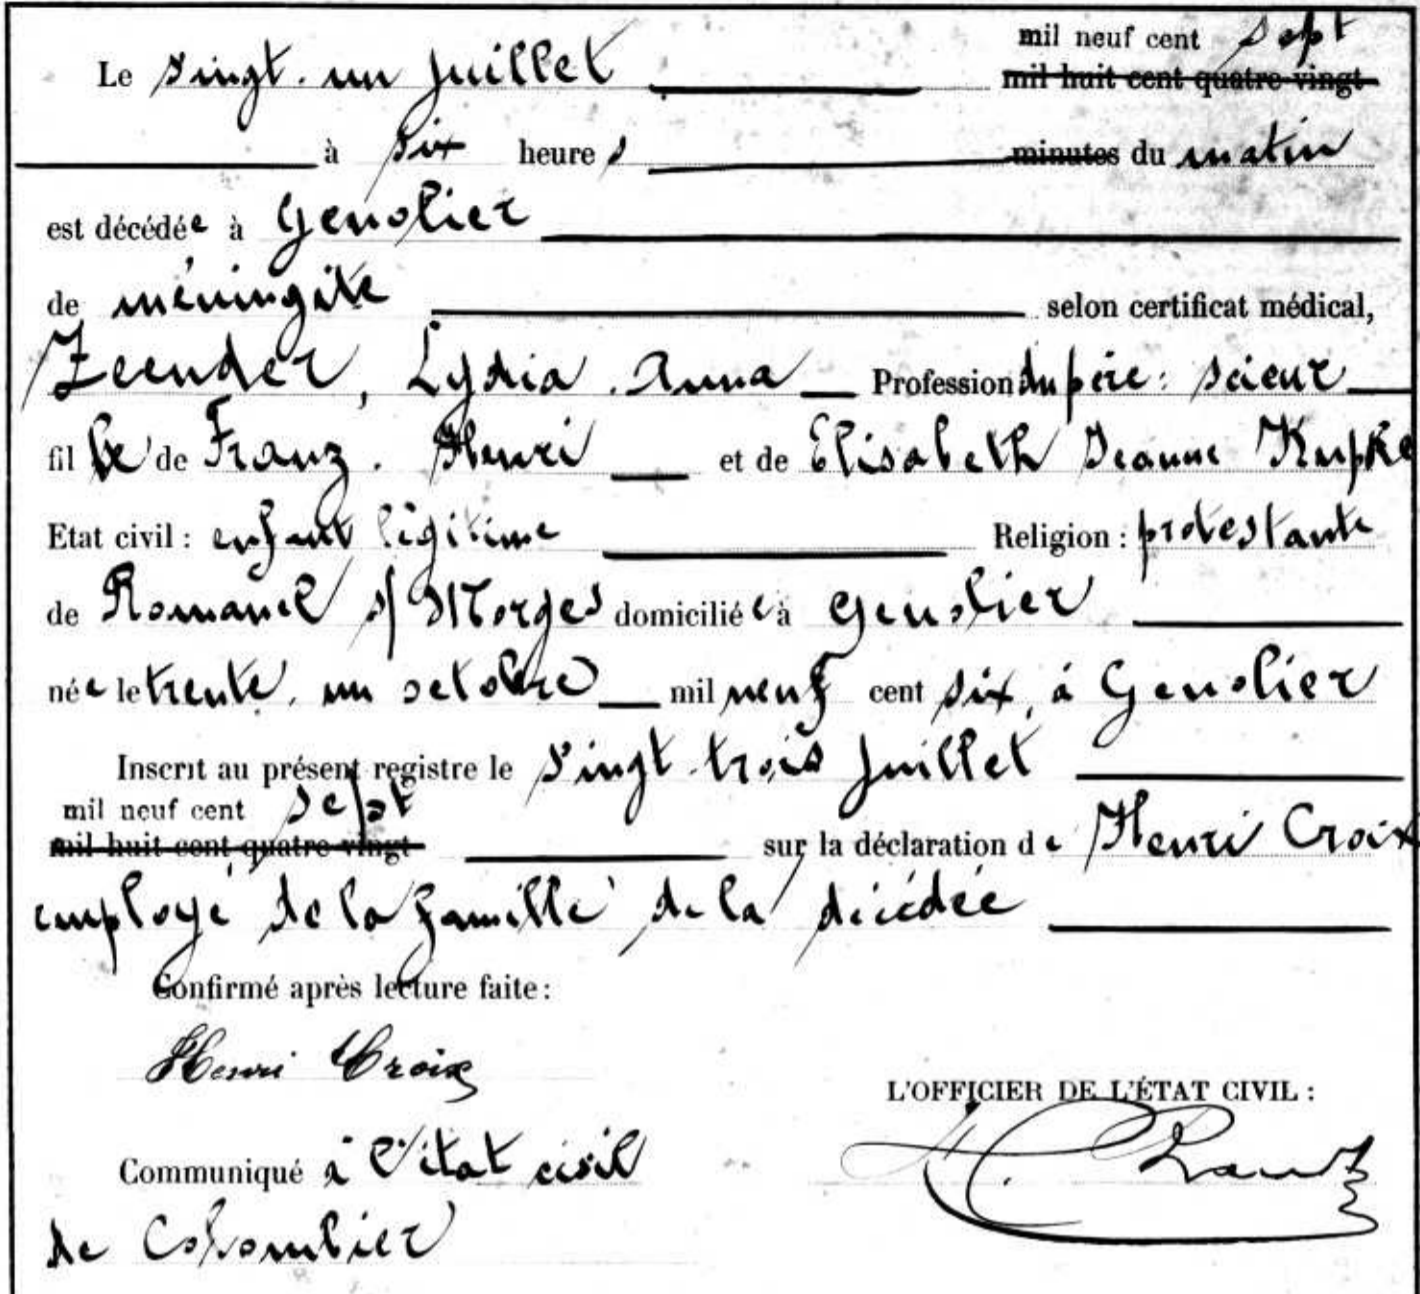 mil neuf cent sept
Le vingt-un juillet mil huit cent quatre-vingt
à six heures minutes du matin
est décédée à Genolier
de méningite selon certificat médical,
Zeender, Lydia-Anna Profession du père: scieur
fille de Franz-Henri et de Elisabeth Jeanne Kupke
Etat civil : enfant légitime Religion : protestante
de Romanel s/ Morges domiciliée à Genolier
née le trente-un octobre mil neuf cent six, à Genolier
Inscrit au présent registre le vingt-trois juillet
mil neuf cent sept
mil huit cent quatre-vingt sur la déclaration de Henri Croix
employé de la famille de la décédée
Confirmé après lecture faite :
Henri Croix
L'OFFICIER DE L'ÉTAT CIVIL :
Communiqué à l'état civil
de Colombier